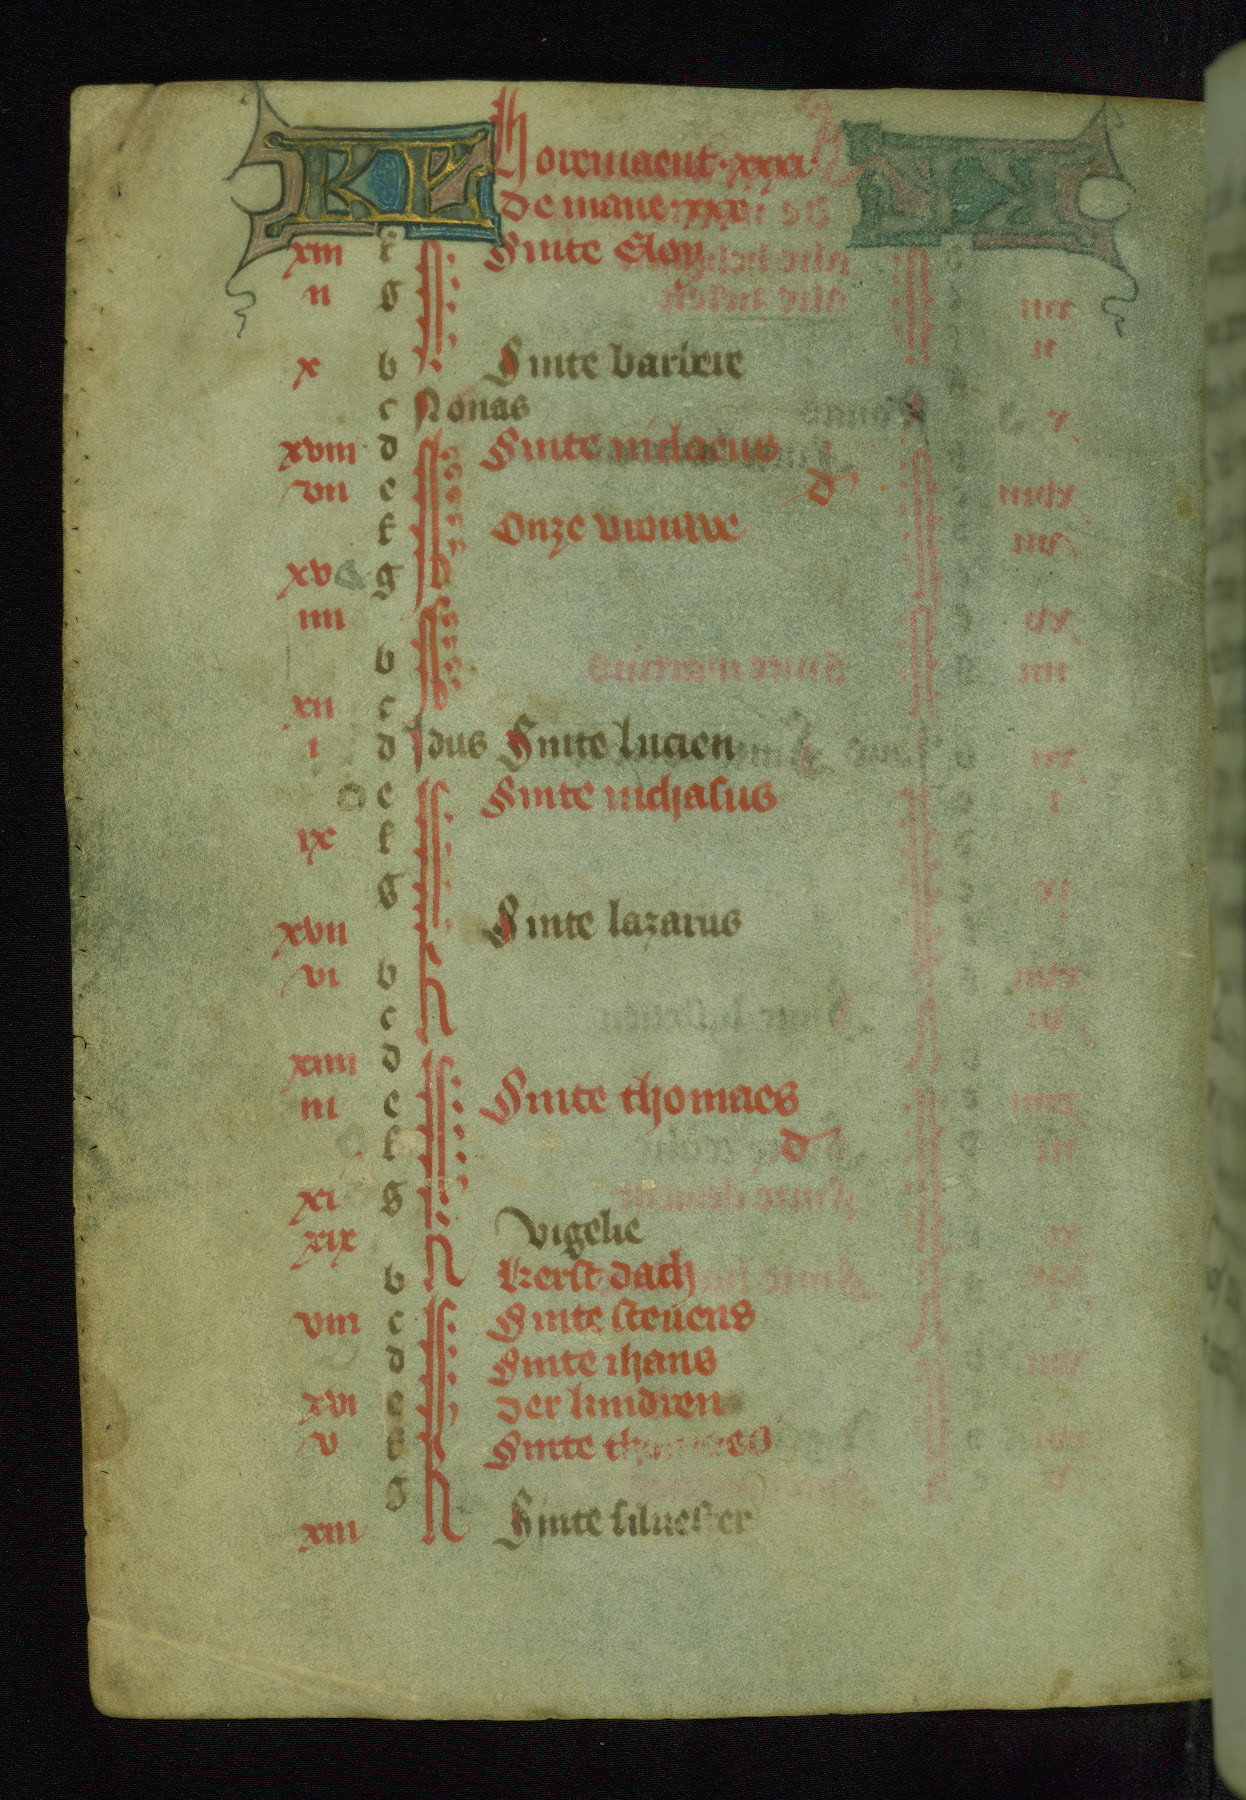 KL Horemaent · xxxi ·
De mane xxx
xiii f Sinte Eloy
ii g
x b Sinte barbere
c Nonas
xviii d Sinte niclaeus
vii e d
f Onze vrouwe
xv g
iiii
b
xii c
i d Idus Sinte lucien
e Sinte nichasius
ix f
g
xvii Sinte lazarus
vi b
c
xiiii d
iii e Sinte thomaes
f d
xi g
xix Vigelie
b kerst dach
viii c Sinte steuens
d Sinte ihans
xvi e Der kindren
v f Sinte thomaes
g
xiii Sinte siluester